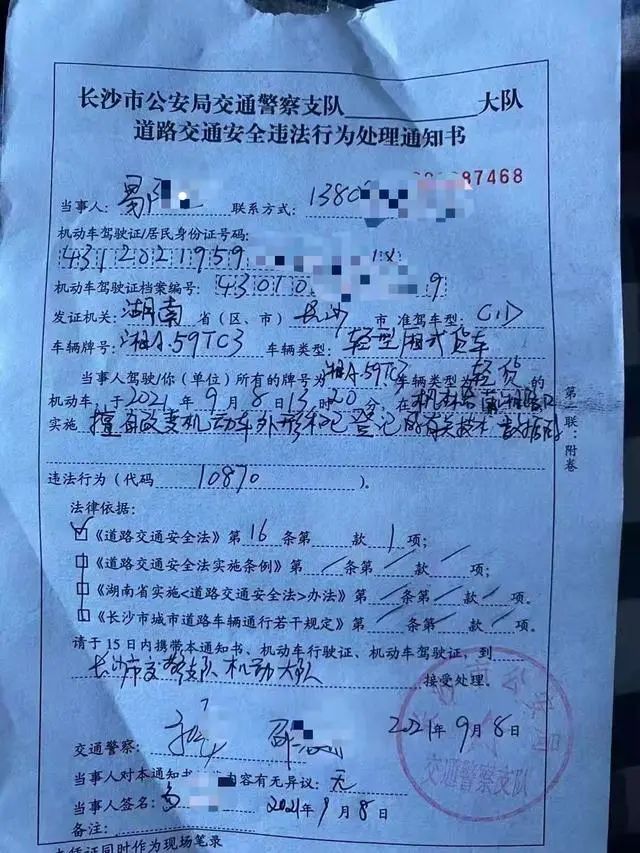 长沙市公安局交通警察支队 大队
道路交通安全违法行为处理通知书
87468
当事人: 联系方式: 1380
机动车驾驶证/居民身份证号码:
4312021959
机动车驾驶证档案编号: 43010 9
发证机关: 湖南 省(区、市) 长沙 市 准驾车型: C1D
车辆牌号: 湘A·59TC3 车辆类型: 轻型厢式货车
当事人驾驶/你(单位)所有的牌号为 湘A·59TC3 车辆类型为 轻货 的
机动车,于 2021 年 9 月 8 日 13 时 20 分,在
实施 擅自改变机动车外形和已登记的有关技术数据的
违法行为(代码 10870 )。
法律依据:
《道路交通安全法》第 16 条第 款 1 项;
《道路交通安全法实施条例》第 / 条第 / 款 / 项;
《湖南省实施<道路交通安全法>办法》第 / 条第 / 款 / 项;
《长沙市城市道路车辆通行若干规定》第 / 条第 / 款 / 项;
请于15日内携带本通知书、机动车行驶证、机动车驾驶证,到
长沙市交警支队机动大队 接受处理。
2021年9月8日
交通警察:
交通警察支队
当事人对本通知书 内容有无异议: 无
当事人签名: 2021年9月8日
备注:
凭证同时作为现场笔录
第一联:附卷